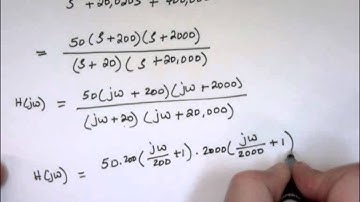 s² + 20,020s + 400,000
= 50(s+200)(s+2000) / (s+20)(s+20,000)
H(jω) = 50(jω + 200)(jω + 2000) / (jω+20)(jω+20,000)
H(jω) = 50·200(jω/200 + 1)·2000(jω/2000 + 1)